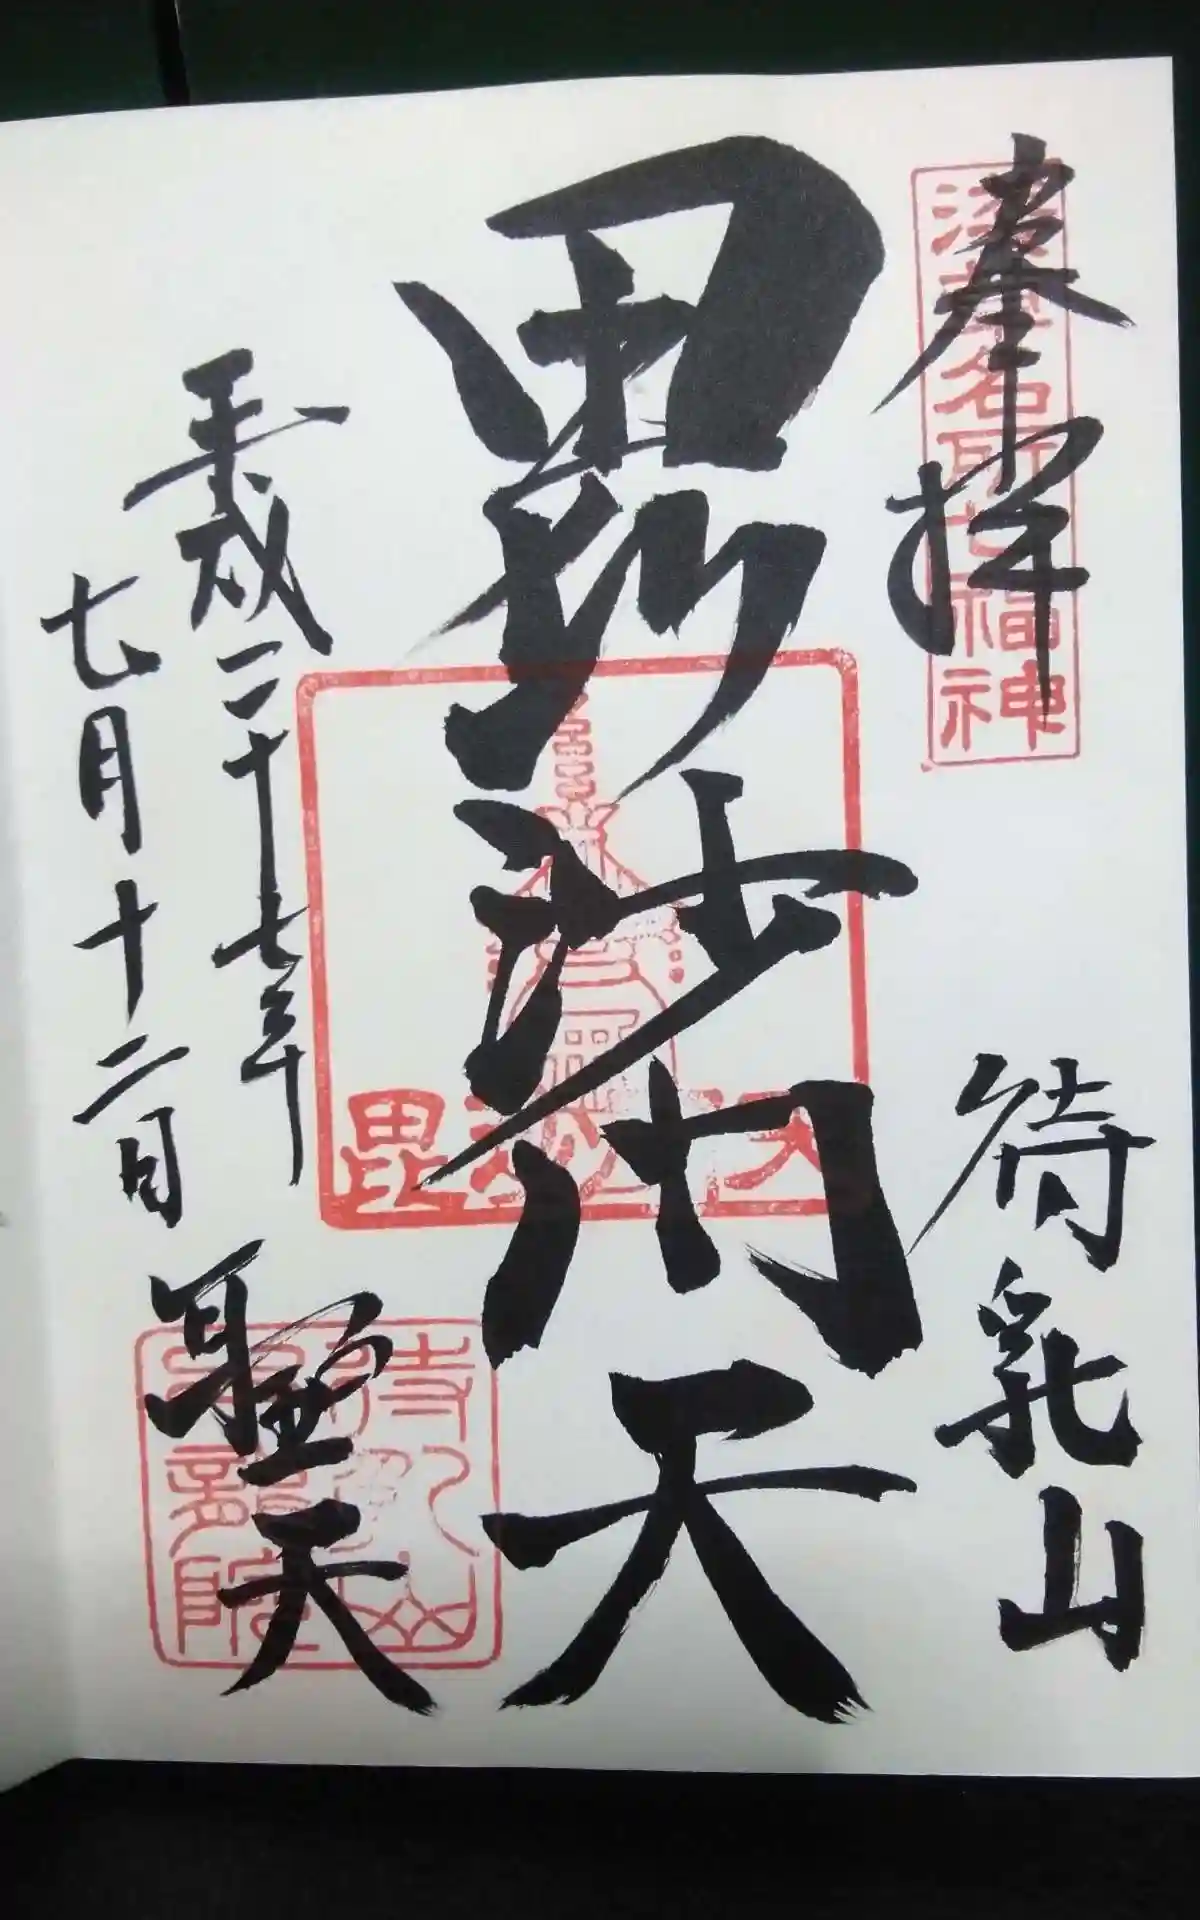 奉拝
浅草名所七福神
待乳山
毘沙門天
毘沙門天
平成二十七年
七月十二日
聖天
待乳山
本龍院